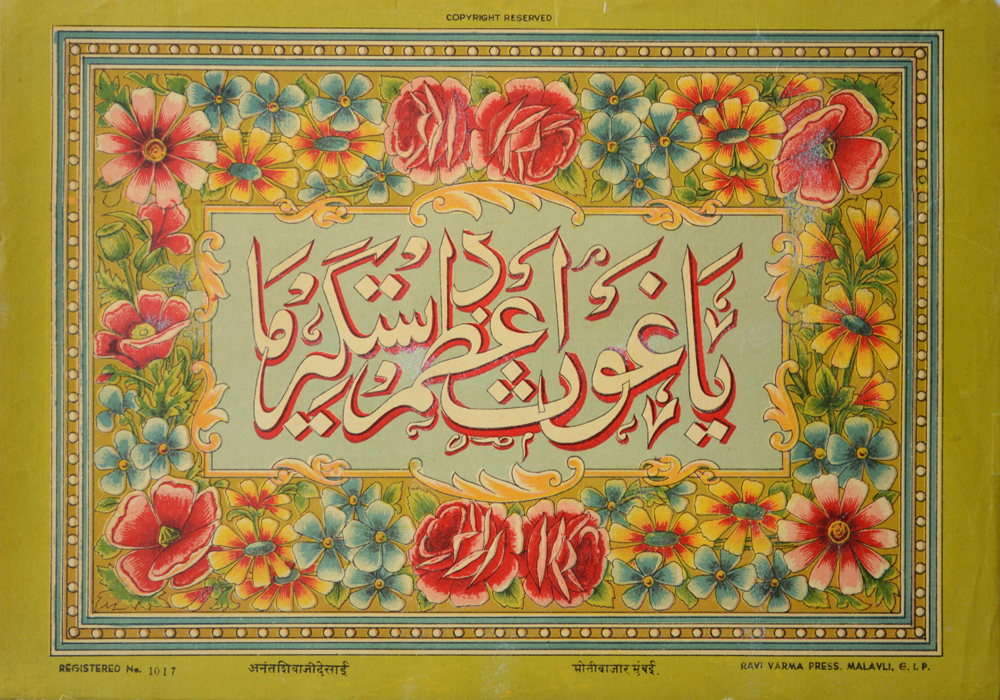 COPYRIGHT RESERVED
یا غوث اعظم دستگیر ما
REGISTERED No. 1017 अनंतशिवाजीदेसाई मोतीबाजार मुंबई. RAVI VARMA PRESS. MALAVLI, G. I. P.